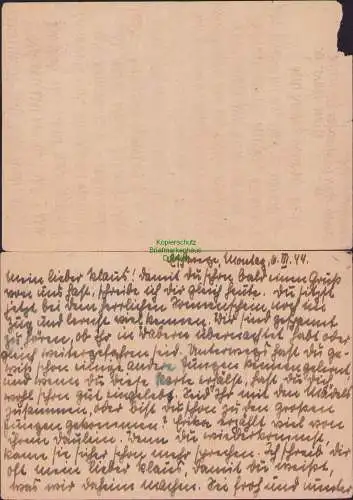 Kopierschutz
Briefmarkenhaus
Eschwege, Montag, 6. III. 44.
Mein lieber Klaus! Damit du schon bald einen Gruß
von uns hast, schreibe ich dir gleich heute. Du sitzt
jetzt bei dem herrlichen Sonnenschein noch im
Zug und lernst viel kennen. Wir sind gespannt
zu hören, ob ihr in übernachtet habt oder
gleich weitergefahren seid. Unterwegs hast du ge-
wiß schon einige andere Jungen kennengelernt,
und wenn du diese Karte erhälst, hast du dich
wohl schon gut eingelebt. Seid Ihr mit den Mädels
zusammen, oder bist du schon zu den großen
Jungen gekommen? erzählt viel von
ihrem Däumlein. Wenn du wiederkommst,
kann sie sicher schon mehr sprechen. Ich schreib dir
oft mein lieber Klaus, damit du weißt,
was wir daheim machen. Sei froh und munter